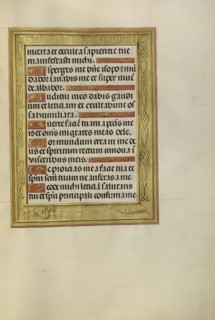 incerta et occulta sapientie tue
manifestasti michi.
Asperges me dñe isopo et mũ
dabor lauabis me et super niuẽ
de albabor.
Auditui meo dabis gaudi
um et leticiam et exultabunt os
sa humiliata.
Auerte faciẽ tuam a pctis me
is et oẽs iniqtates meas dele.
Cor mundum crea in me de
us et spiritum rectum innoua ĩ
visceribus meis.
Ne proicias me a facie tua et
spm sctũ tuum ne auferas a me.
Redde michi leticiã salutaris
tui et spũ principali confirma me